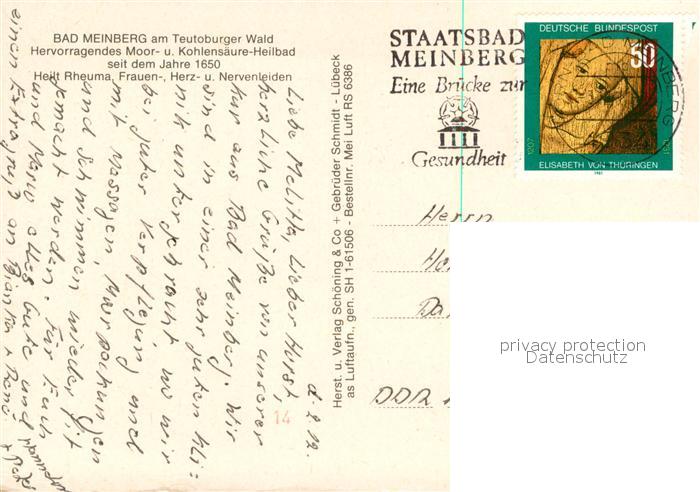 BAD MEINBERG am Teutoburger Wald
Hervorragendes Moor- u. Kohlensäure-Heilbad
seit dem Jahre 1650
Heilt Rheuma, Frauen-, Herz- u. Nervenleiden
d. 2.12.
Liebe Melitta, lieber Horst,
herzliche Grüße von unserer
Kur aus Bad Meinberg. Wir
sind in einer sehr guten Kli-
nik untergebracht, wo wir
bei guter Verpflegung und
mit Massagen, Moorpackungen
und Schwimmen wieder fit
gemacht werden. Für Euch
und Mario alles Gute und
einen Extragruß an Bianka + René
14
Herst. u. Verlag Schöning & Co + Gebrüder Schmidt - Lübeck
as Luftaufn., gen. SH 1-61506 - Bestellnr. Mei Luft RS 6386
STAATSBAD
MEINBERG
Eine Brücke zur
Gesundheit
DEUTSCHE BUNDESPOST
50
1207
1231
ELISABETH VON THÜRINGEN
1981
MEINBERG
Herrn
DDR
privacy protection
Datenschutz